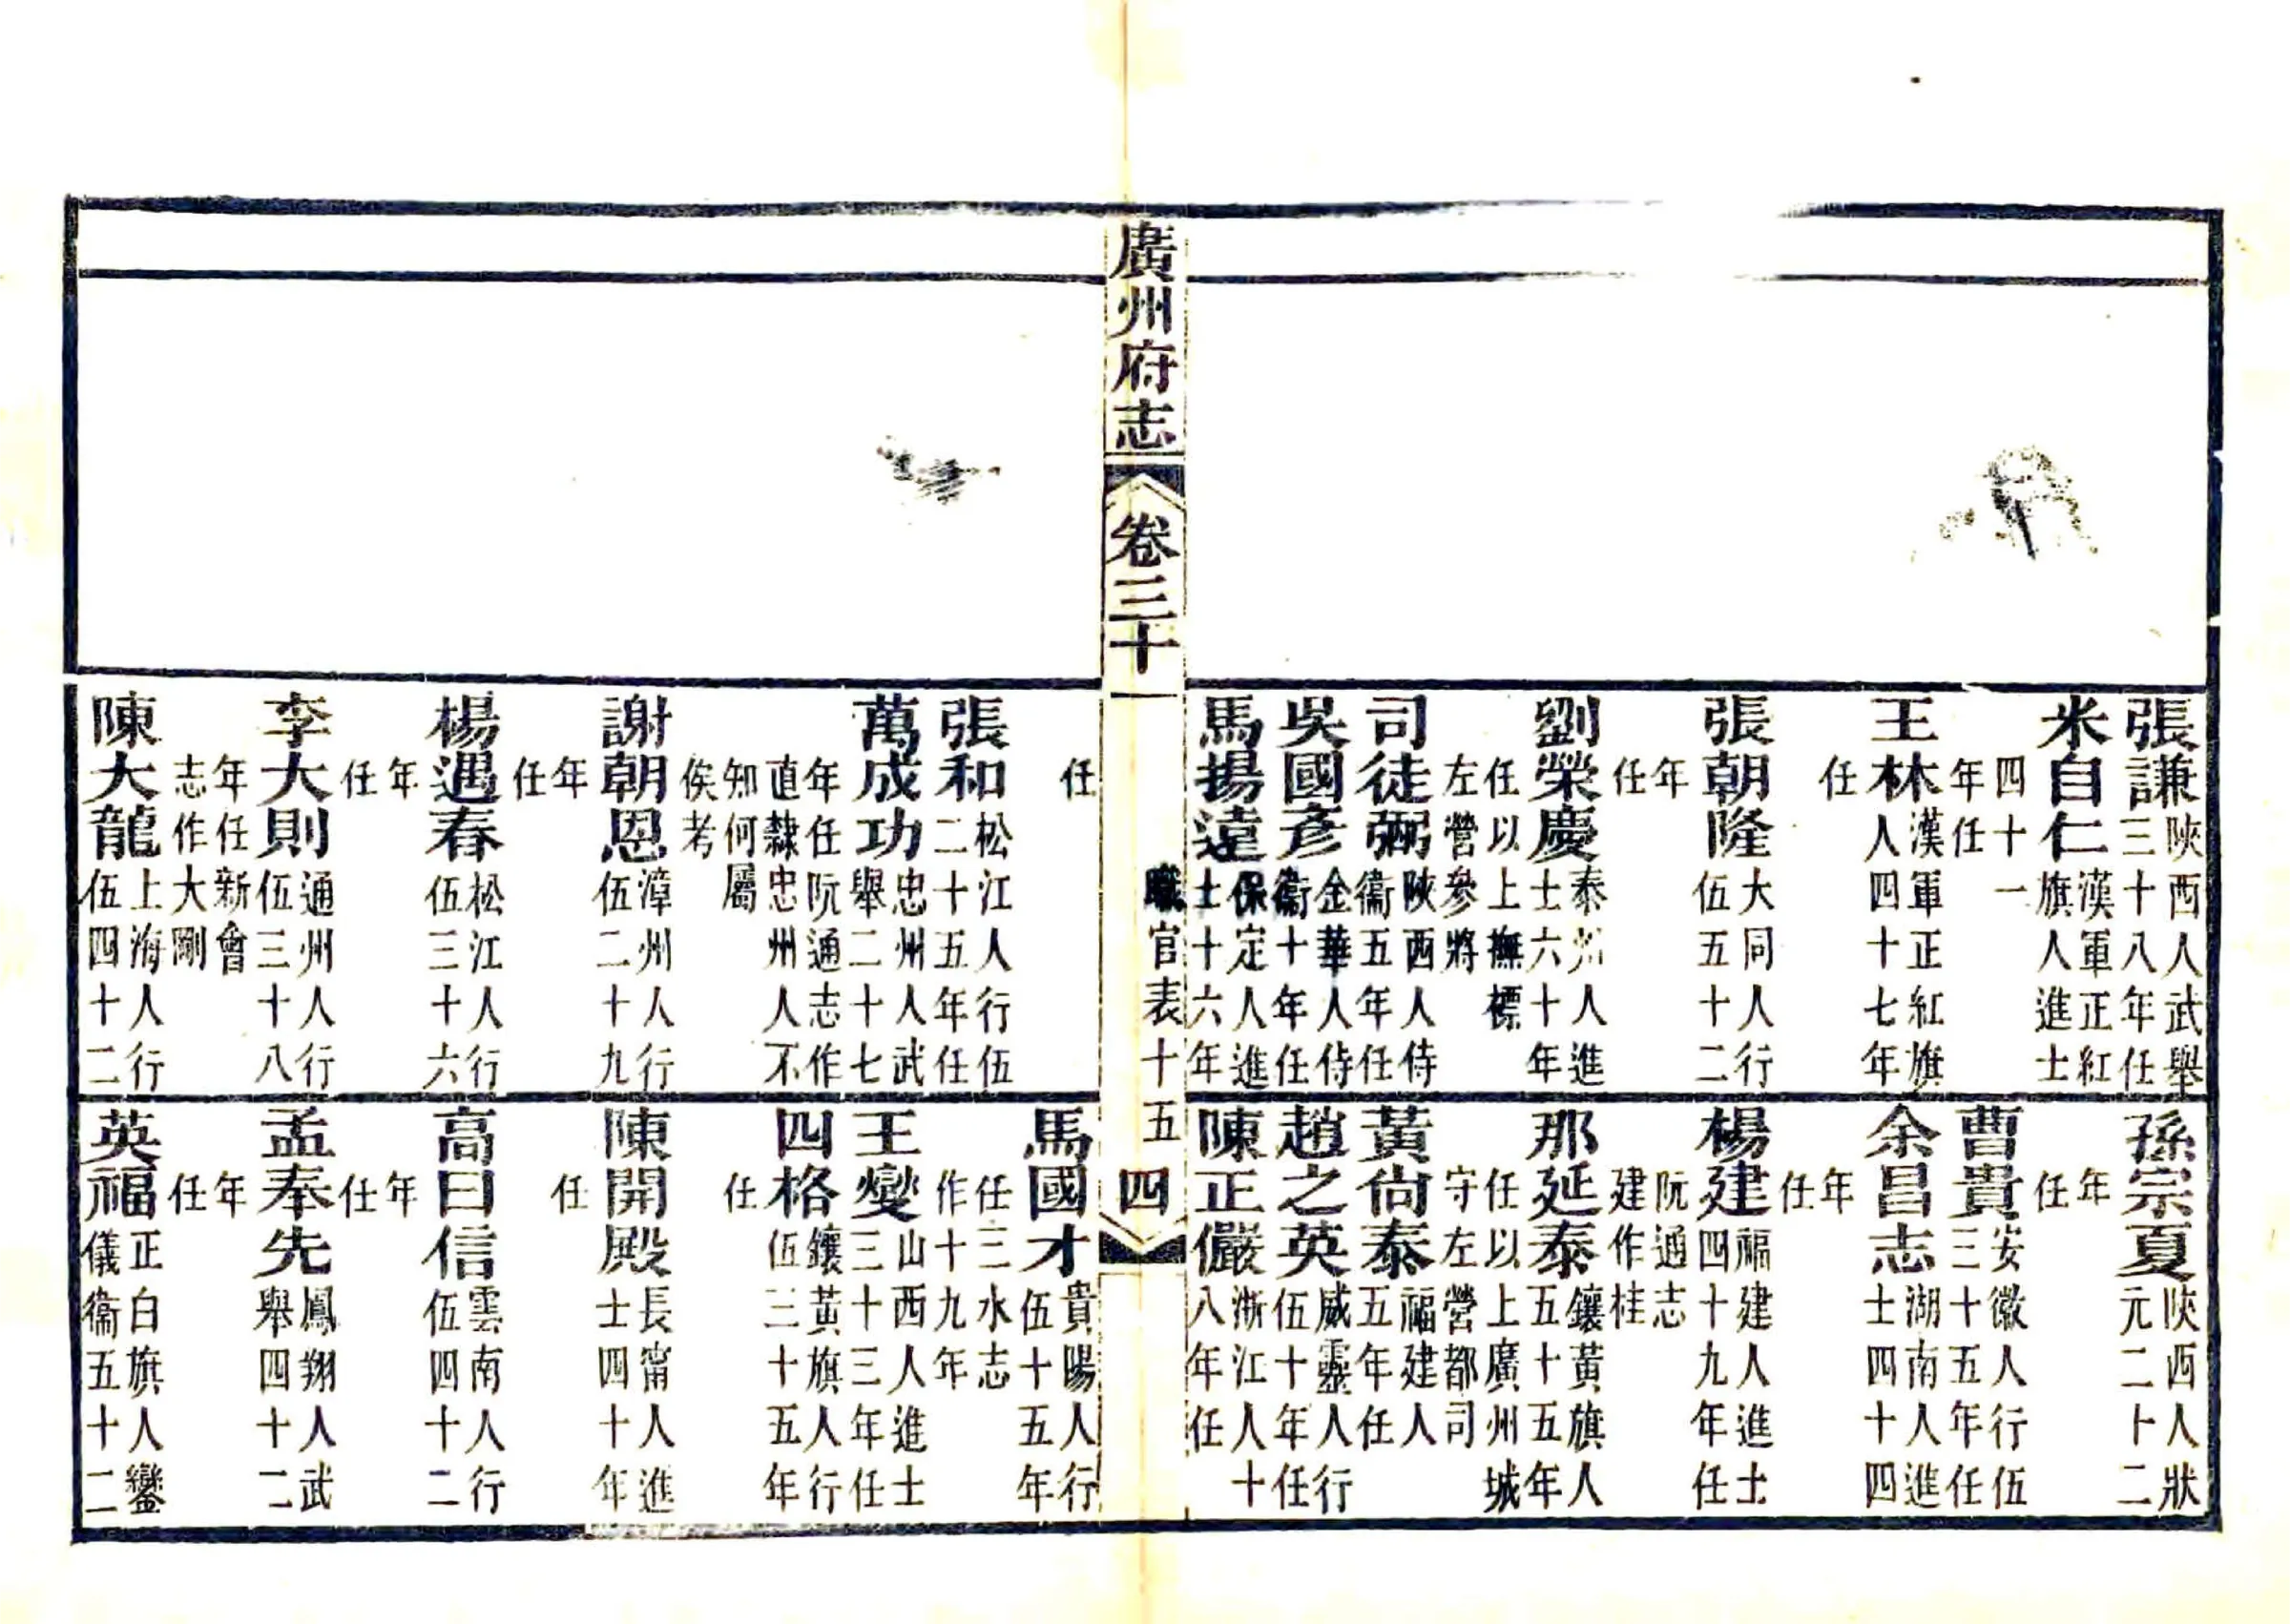 張謙陝西人武舉三十八年任
米自仁漢軍正紅旗人進士四十一年任
王林漢軍正紅旗人四十七年任
張朝隆大同人行伍五十二年任
劉榮慶泰州人進士六十年任以上撫標左營參將
司徒弼陝西人侍衞五年任
吳國彥金華人侍衞十年任
馬揚遠保定人進士十六年
孫宗夏陝西人狀元二十二年任
曹貴安徽人行伍三十五年任
余昌志湖南人進士四十四年任
楊建福建人進士四十九年任阮通志建作桂
那延泰鑲黃旗人五十五年任以上廣州城守左營都司
黃尙泰福建人五年任
趙之英威靈人行伍十年任
陳正儼浙江人十八年任
廣州府志 卷三十 職官表十五 四
任
張和松江人行伍二十五年任
萬成功忠州人武舉二十七年任阮通志作直隸忠州人不知何屬俟考
謝朝恩漳州人行伍二十九年任
楊遇春松江人行伍三十六年任
李大則通州人行伍三十八年任新會志作大剛
陳大龍上海人行伍四十二
馬國才貴陽人行伍十五年任三水志作十九年
王燮山西人進士三十三年任
四格鑲黃旗人行伍三十五年任
陳開殿長甯人進士四十年任
高曰信雲南人行伍四十二年任
孟奉先鳳翔人武舉四十二年任
英福正白旗人鑾儀衞五十二